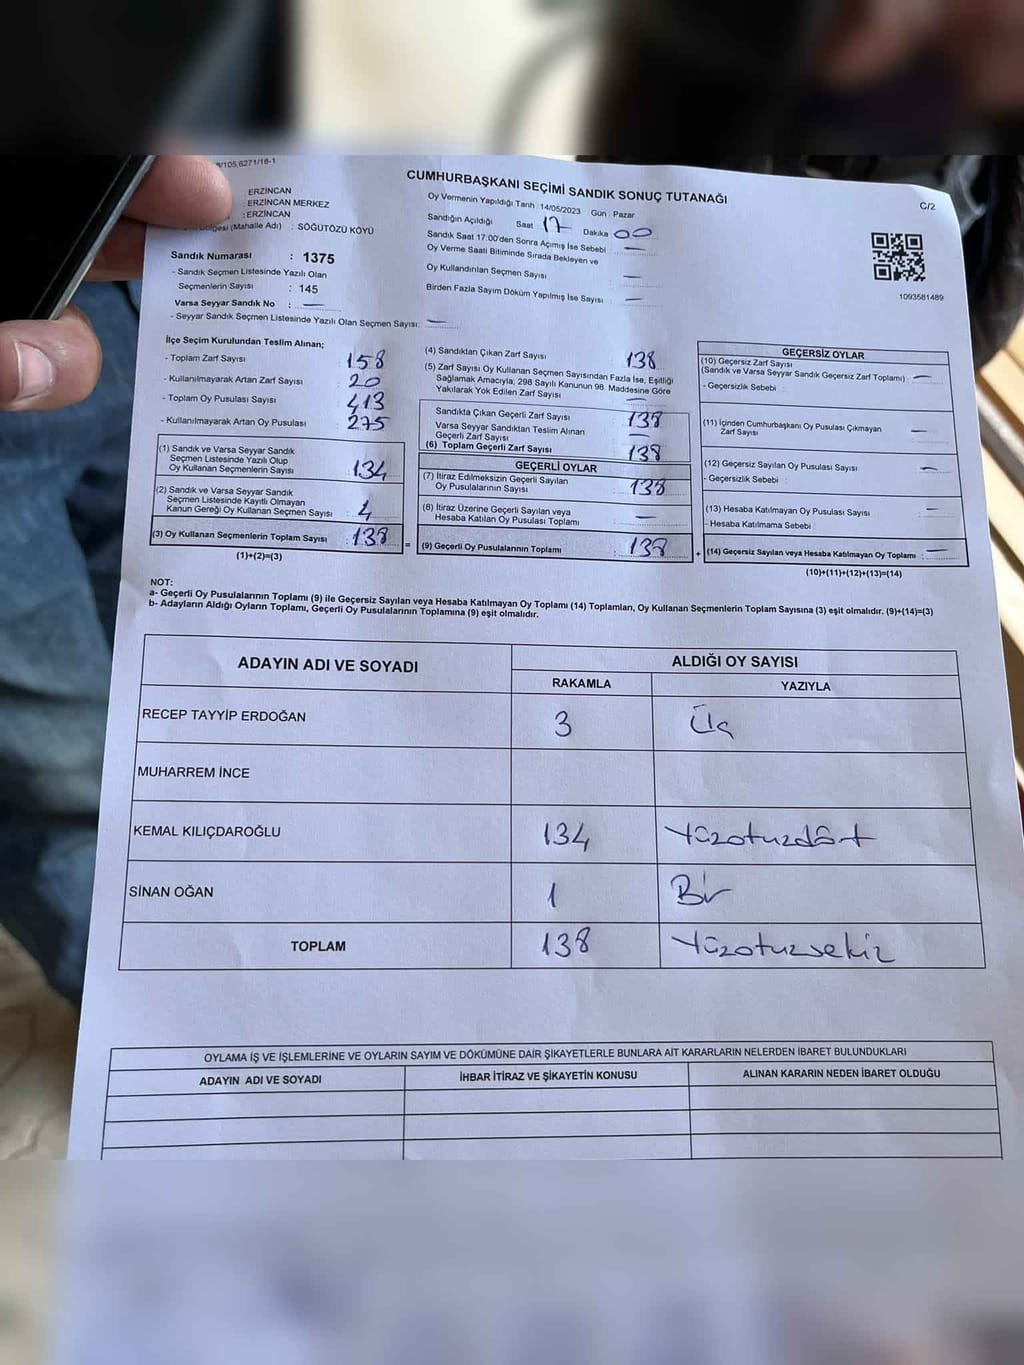 /105.6271/16-1
CUMHURBAŞKANI SEÇİMİ SANDIK SONUÇ TUTANAĞI
C/2
ERZİNCAN
: ERZİNCAN MERKEZ
: ERZİNCAN
(Mahalle Adı) : SÖĞÜTÖZÜ KÖYÜ
Sandık Numarası : 1375
- Sandık Seçmen Listesinde Yazılı Olan
Seçmenlerin Sayısı : 145
Varsa Seyyar Sandık No : —
- Seyyar Sandık Seçmen Listesinde Yazılı Olan Seçmen Sayısı: —
Oy Vermenin Yapıldığı Tarih : 14/05/2023 Gün : Pazar
Sandığın Açıldığı Saat 17 Dakika 00
Sandık Saat 17:00'den Sonra Açımış İse Sebebi —
Oy Verme Saati Bitiminde Sırada Bekleyen ve
Oy Kullandırılan Seçmen Sayısı —
Birden Fazla Sayım Döküm Yapılmış İse Sayısı —
1093581489
İlçe Seçim Kurulundan Teslim Alınan;
- Toplam Zarf Sayısı 158
- Kullanılmayarak Artan Zarf Sayısı 20
- Toplam Oy Pusulası Sayısı 413
- Kullanılmayarak Artan Oy Pusulası 275
(1) Sandık ve Varsa Seyyar Sandık
Seçmen Listesinde Yazılı Olup
Oy Kullanan Seçmenlerin Sayısı 134
(2) Sandık ve Varsa Seyyar Sandık
Seçmen Listesinde Kayıtlı Olmayan
Kanun Gereği Oy Kullanan Seçmen Sayısı 4
(3) Oy Kullanan Seçmenlerin Toplam Sayısı 138
(1)+(2)=(3)
=
(4) Sandıktan Çıkan Zarf Sayısı 138
(5) Zarf Sayısı Oy Kullanan Seçmen Sayısından Fazla İse, Eşitliği
Sağlamak Amacıyla; 298 Sayılı Kanunun 98. Maddesine Göre
Yakılarak Yok Edilen Zarf Sayısı —
Sandıkta Çıkan Geçerli Zarf Sayısı 138
Varsa Seyyar Sandıktan Teslim Alınan
Geçerli Zarf Sayısı —
(6) Toplam Geçerli Zarf Sayısı 138
GEÇERLİ OYLAR
(7) İtiraz Edilmeksizin Geçerli Sayılan
Oy Pusulalarının Sayısı 138
(8) İtiraz Üzerine Geçerli Sayılan veya
Hesaba Katılan Oy Pusulası Toplamı —
(9) Geçerli Oy Pusulalarının Toplamı 138
+
GEÇERSİZ OYLAR
(10) Geçersiz Zarf Sayısı
(Sandık ve Varsa Seyyar Sandık Geçersiz Zarf Toplamı) —
- Geçersizlik Sebebi :
(11) İçinden Cumhurbaşkanı Oy Pusulası Çıkmayan
Zarf Sayısı —
(12) Geçersiz Sayılan Oy Pusulası Sayısı —
- Geçersizlik Sebebi :
(13) Hesaba Katılmayan Oy Pusulası Sayısı —
- Hesaba Katılmama Sebebi :
(14) Geçersiz Sayılan veya Hesaba Katılmayan Oy Toplamı —
(10)+(11)+(12)+(13)=(14)
NOT:
a- Geçerli Oy Pusulalarının Toplamı (9) ile Geçersiz Sayılan veya Hesaba Katılmayan Oy Toplamı (14) Toplamları, Oy Kullanan Seçmenlerin Toplam Sayısına (3) eşit olmalıdır. (9)+(14)=(3)
b- Adayların Aldığı Oyların Toplamı, Geçerli Oy Pusulalarının Toplamına (9) eşit olmalıdır.
ADAYIN ADI VE SOYADI ALDIĞI OY SAYISI
RAKAMLA YAZIYLA
RECEP TAYYİP ERDOĞAN 3 Üç
MUHARREM İNCE
KEMAL KILIÇDAROĞLU 134 Yüzotuzdört
SİNAN OĞAN 1 Bir
TOPLAM 138 Yüzotuzsekiz
OYLAMA İŞ VE İŞLEMLERİNE VE OYLARIN SAYIM VE DÖKÜMÜNE DAİR ŞİKAYETLERLE BUNLARA AİT KARARLARIN NELERDEN İBARET BULUNDUKLARI
ADAYIN ADI VE SOYADI İHBAR İTİRAZ VE ŞİKAYETİN KONUSU ALINAN KARARIN NEDEN İBARET OLDUĞU